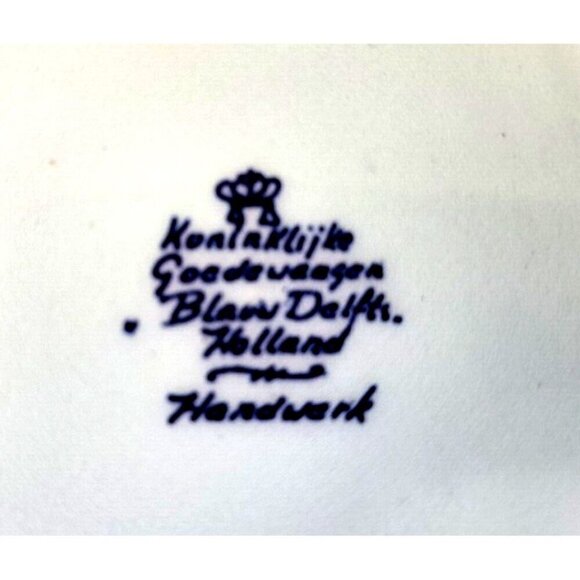 Koninklijke
Goedewaagen
Blauw Delfts.
Holland
Handwerk